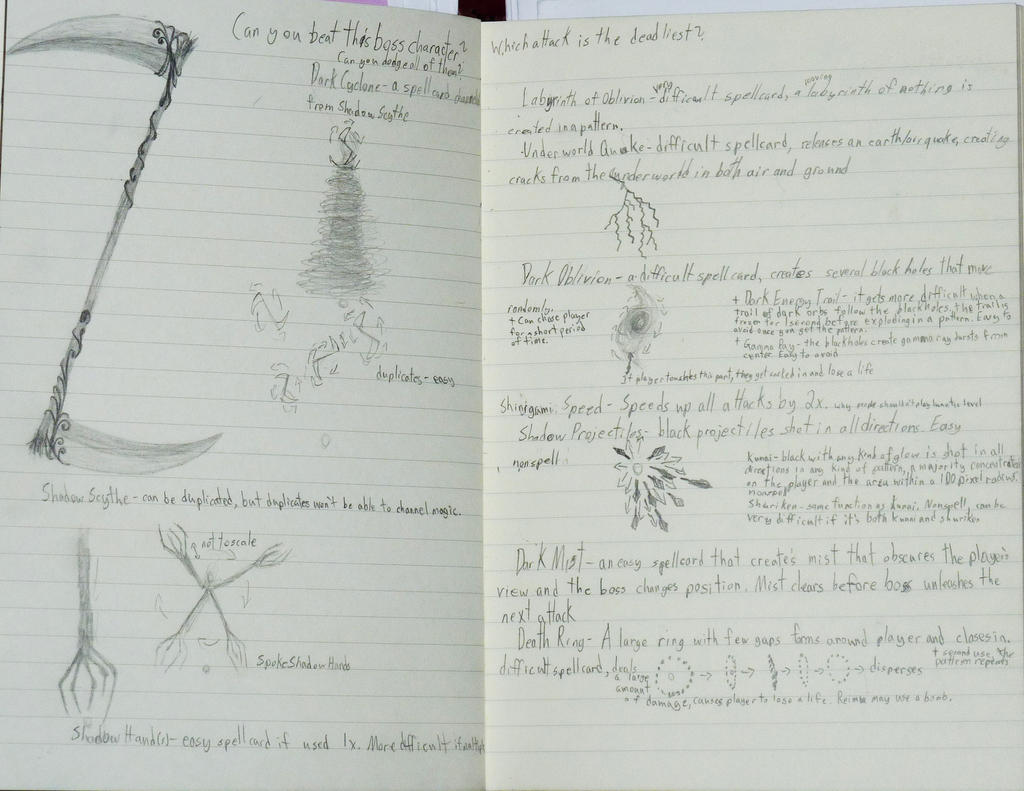 Can you beat this boss character?
Can you dodge all of them?
Dark Cyclone - a spellcard
from Shadow Scythe
duplicates - easy
Shadow Scythe - can be duplicated, but duplicates won't be able to channel magic.
not to scale
Spoke Shadow Hands
Shadow Hand(s) - easy spellcard if used 1x. More difficult if multiple
Which attack is the deadliest?
Labyrinth of Oblivion - very difficult spellcard, a moving labyrinth of nothing is
created in a pattern.
Underworld Quake - difficult spellcard, releases an earth/air quake, creating
cracks from the underworld in both air and ground
Dark Oblivion - a difficult spellcard, creates several black holes that move
randomly.
+ Can chase player
for a short period
of time.
+ Dark Energy Trail - it gets more difficult when a
trail of dark orbs follow the blackholes, the trail is
frozen for 1 second before exploding in a pattern. Easy to
avoid once you get the pattern.
+ Gamma Ray - the blackholes create gamma ray bursts from
center. Easy to avoid
If player touches this part, they get sucked in and lose a life
Shinigami Speed - Speeds up all attacks by 2x. why people shouldn't play lunatic level
Shadow Projectiles - black projectiles shot in all directions. Easy
nonspell
Kunai - black with any kind of glow is shot in all
directions in any kind of pattern, a majority concentrated
on the player and the area within a 100 pixel radius.
nonspell
Shuriken - same function as kunai. Nonspell, can be
very difficult if it's both kunai and shuriken
Dark Mist - an easy spellcard that create's mist that obscures the player's
view and the boss changes position. Mist clears before boss unleashes the
next attack
Death Ring - A large ring with few gaps forms around player and closes in.
+ second use, the
pattern repeats
difficult spellcard, deals
a large
amount
of damage, causes player to lose a life. Reimu may use a bomb.
disperses